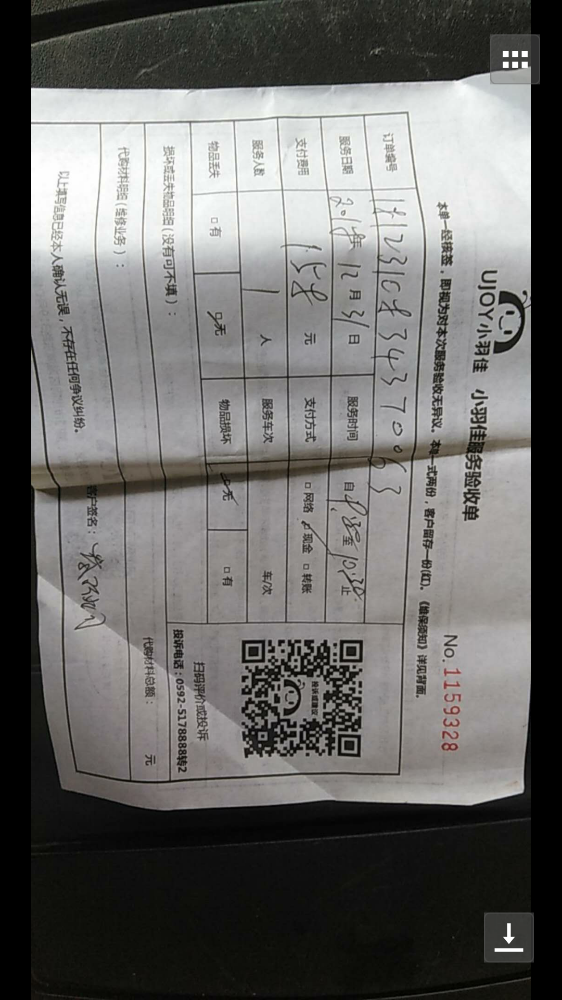 UJOY小羽佳 小羽佳服务验收单
No. 1159328
本单一经核签，即视为对本次服务验收无异议，本单一式两份，客户留存一份(红)。《维保须知》详见背面。
订单编号
服务日期 2018年 12月31日 服务时间 自 至 10:30止
支付费用 158 元 支付方式 □网络 ☑现金 □转账
服务人数 1 人 服务车次 车/次
物品丢失 □有 ☑无 物品损坏 ☑无 □有
损坏或丢失物品明细(没有可不填)：
代购材料明细(维修业务)：
代购材料总额： 元
以上填写信息已经本人确认无误，不存在任何争议纠纷。
客户签名：
投诉或建议
扫码评价或投诉
投诉电话：0592-5178888转2